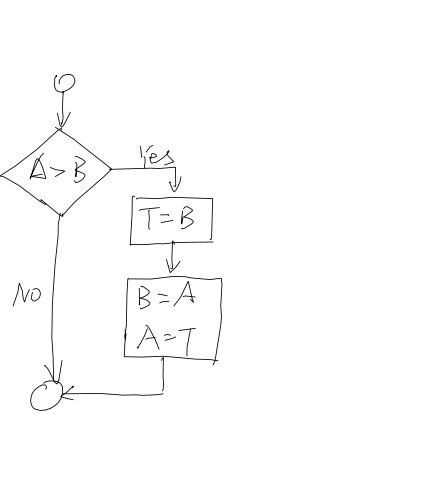 A > B
Yes
T = B
B = A
A = T
NO